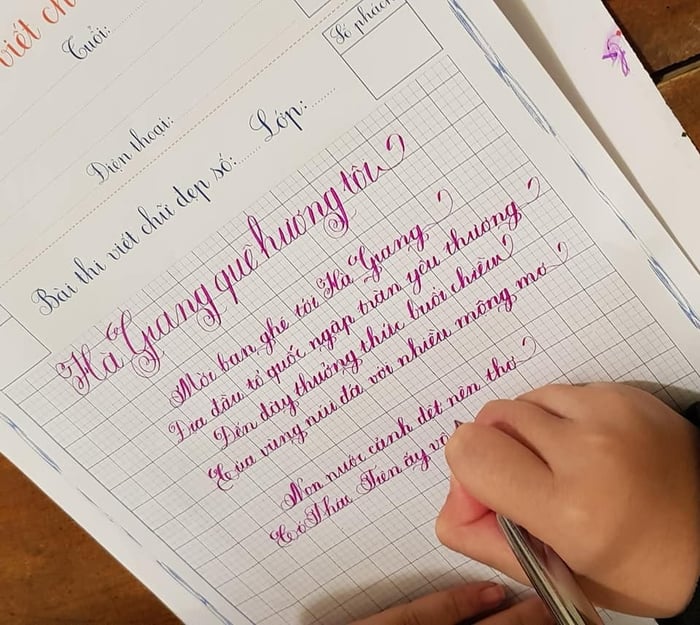 viết ch
Tuổi:
Số phách
Điện thoại:
Bài thi viết chữ đẹp số:...... Lớp:........
Hà Giang quê hương tôi
Mời bạn ghé tới Hà Giang
Địa đầu tổ quốc ngập tràn yêu thương
Đến đây thưởng thức buổi chiều
Của vùng núi đá với nhiều mộng mơ
Non nước cảnh dệt nên thơ
Cô Tiên ấy